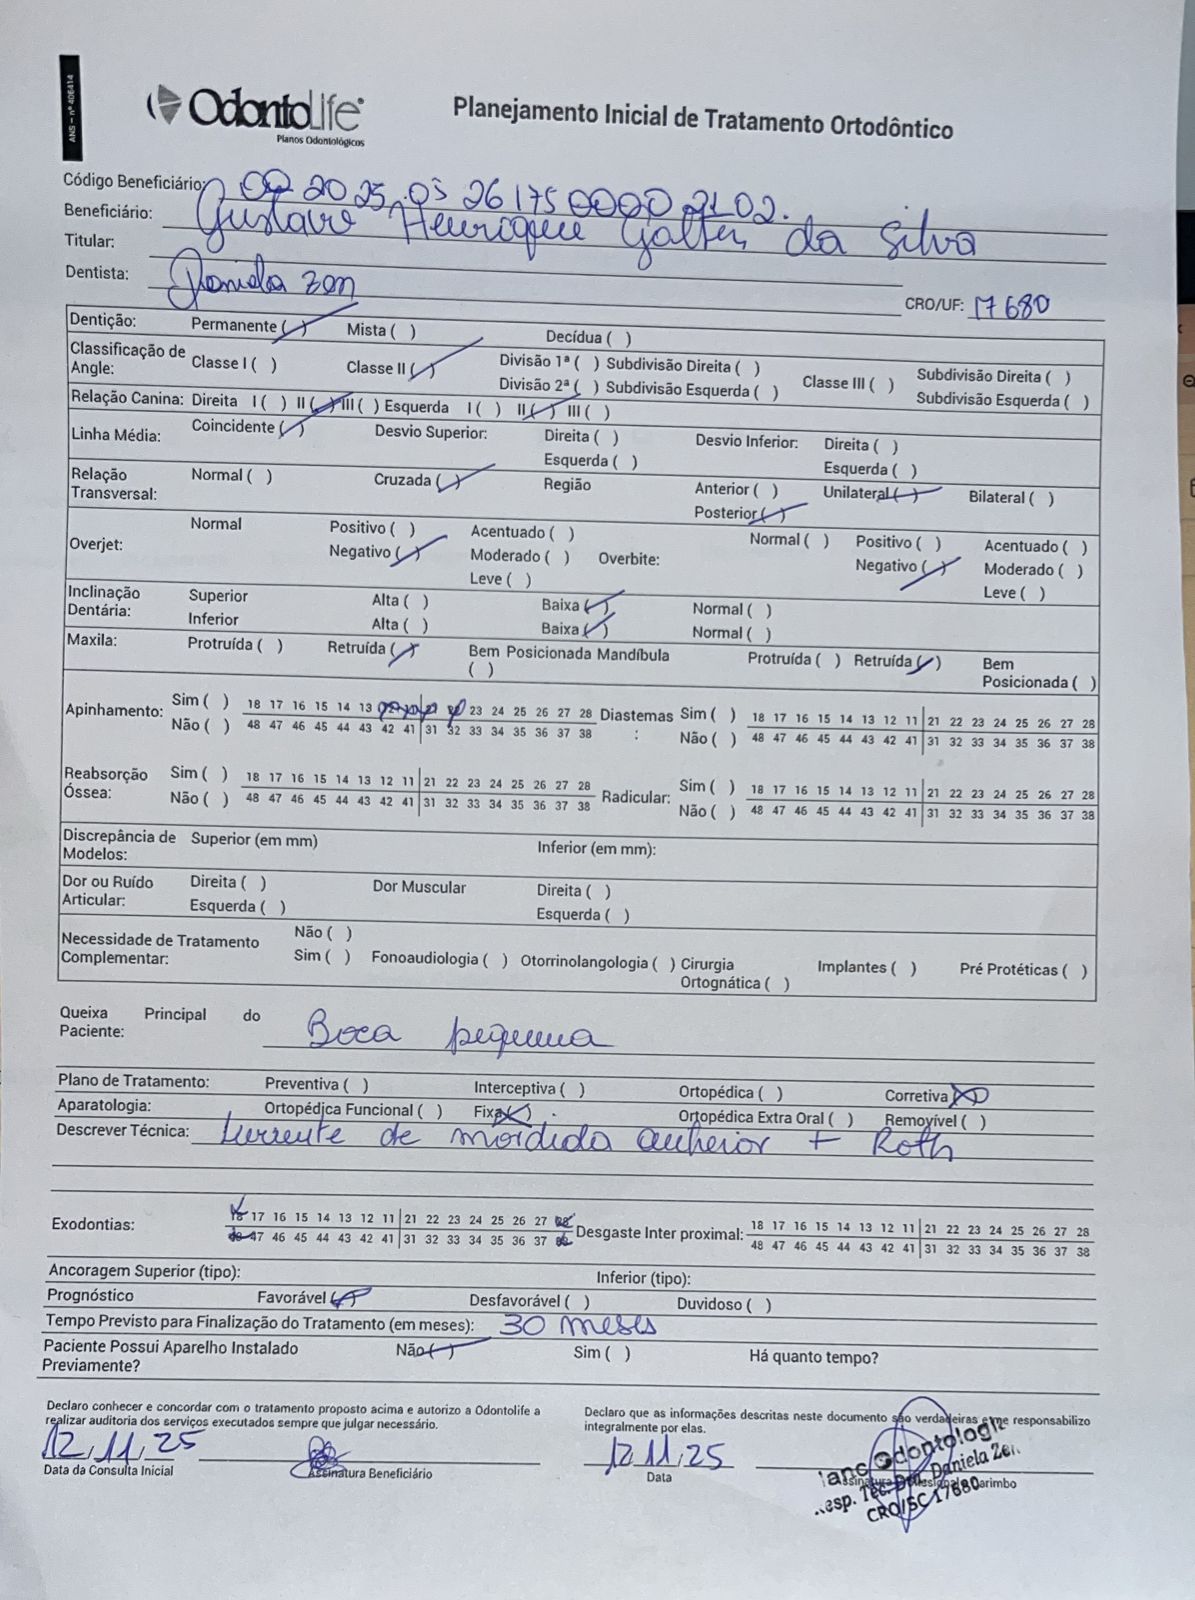 ANS - nº 406414
OdontoLife
Planos Odontológicos
Planejamento Inicial de Tratamento Ortodôntico
Código Beneficiário: 00 2025 05 26175 0000 2102.
Beneficiário: Gustavo Henrique Galten da Silva
Titular:
Dentista: Daniela Zen CRO/UF: 17680
Dentição: Permanente ( ) Mista ( ) Decídua ( )
Classificação de Angle: Classe I ( ) Classe II ( ) Divisão 1ª ( ) Subdivisão Direita ( ) Classe III ( ) Subdivisão Direita ( )
Divisão 2ª ( ) Subdivisão Esquerda ( ) Subdivisão Esquerda ( )
Relação Canina: Direita I ( ) II ( ) III ( ) Esquerda I ( ) II ( ) III ( )
Linha Média: Coincidente ( ) Desvio Superior: Direita ( ) Desvio Inferior: Direita ( )
Esquerda ( ) Esquerda ( )
Relação Transversal: Normal ( ) Cruzada ( ) Região Anterior ( ) Unilateral ( ) Bilateral ( )
Posterior ( )
Overjet: Normal Positivo ( ) Acentuado ( ) Overbite: Normal ( ) Positivo ( ) Acentuado ( )
Negativo ( ) Moderado ( ) Negativo ( ) Moderado ( )
Leve ( ) Leve ( )
Inclinação Dentária: Superior Alta ( ) Baixa ( ) Normal ( )
Inferior Alta ( ) Baixa ( ) Normal ( )
Maxila: Protruída ( ) Retruída ( ) Bem Posicionada Mandíbula ( ) Protruída ( ) Retruída ( ) Bem Posicionada ( )
Apinhamento: Sim ( ) 18 17 16 15 14 13 21 23 24 25 26 27 28 Diastemas : Sim ( ) 18 17 16 15 14 13 12 11 21 22 23 24 25 26 27 28
Não ( ) 48 47 46 45 44 43 42 41 31 32 33 34 35 36 37 38 Não ( ) 48 47 46 45 44 43 42 41 31 32 33 34 35 36 37 38
Reabsorção Óssea: Sim ( ) 18 17 16 15 14 13 12 11 21 22 23 24 25 26 27 28 Radicular: Sim ( ) 18 17 16 15 14 13 12 11 21 22 23 24 25 26 27 28
Não ( ) 48 47 46 45 44 43 42 41 31 32 33 34 35 36 37 38 Não ( ) 48 47 46 45 44 43 42 41 31 32 33 34 35 36 37 38
Discrepância de Modelos: Superior (em mm) Inferior (em mm):
Dor ou Ruído Articular: Direita ( ) Dor Muscular Direita ( )
Esquerda ( ) Esquerda ( )
Necessidade de Tratamento Complementar: Não ( )
Sim ( ) Fonoaudiologia ( ) Otorrinolangologia ( ) Cirurgia Ortognática ( ) Implantes ( ) Pré Protéticas ( )
Queixa Principal do Paciente: Boca pequena
Plano de Tratamento: Preventiva ( ) Interceptiva ( ) Ortopédica ( ) Corretiva (X)
Aparatologia: Ortopédica Funcional ( ) Fixa (X) Ortopédica Extra Oral ( ) Removível ( )
Descrever Técnica: de mordida + Roth
Exodontias: 18 17 16 15 14 13 12 11 21 22 23 24 25 26 27 28 Desgaste Inter proximal: 18 17 16 15 14 13 12 11 21 22 23 24 25 26 27 28
48 47 46 45 44 43 42 41 31 32 33 34 35 36 37 38 48 47 46 45 44 43 42 41 31 32 33 34 35 36 37 38
Ancoragem Superior (tipo): Inferior (tipo):
Prognóstico Favorável ( ) Desfavorável ( ) Duvidoso ( )
Tempo Previsto para Finalização do Tratamento (em meses): 30 meses
Paciente Possui Aparelho Instalado Previamente? Não ( ) Sim ( ) Há quanto tempo?
Declaro conhecer e concordar com o tratamento proposto acima e autorizo a Odontolife a
realizar auditoria dos serviços executados sempre que julgar necessário.
Declaro que as informações descritas neste documento são verdadeiras e me responsabilizo
integralmente por elas.
12/11/25
Data da Consulta Inicial Assinatura Beneficiário
12/11/25
Data
Odontologia
Resp. Téc. Dra. Daniela Zen
CRO/SC 17680